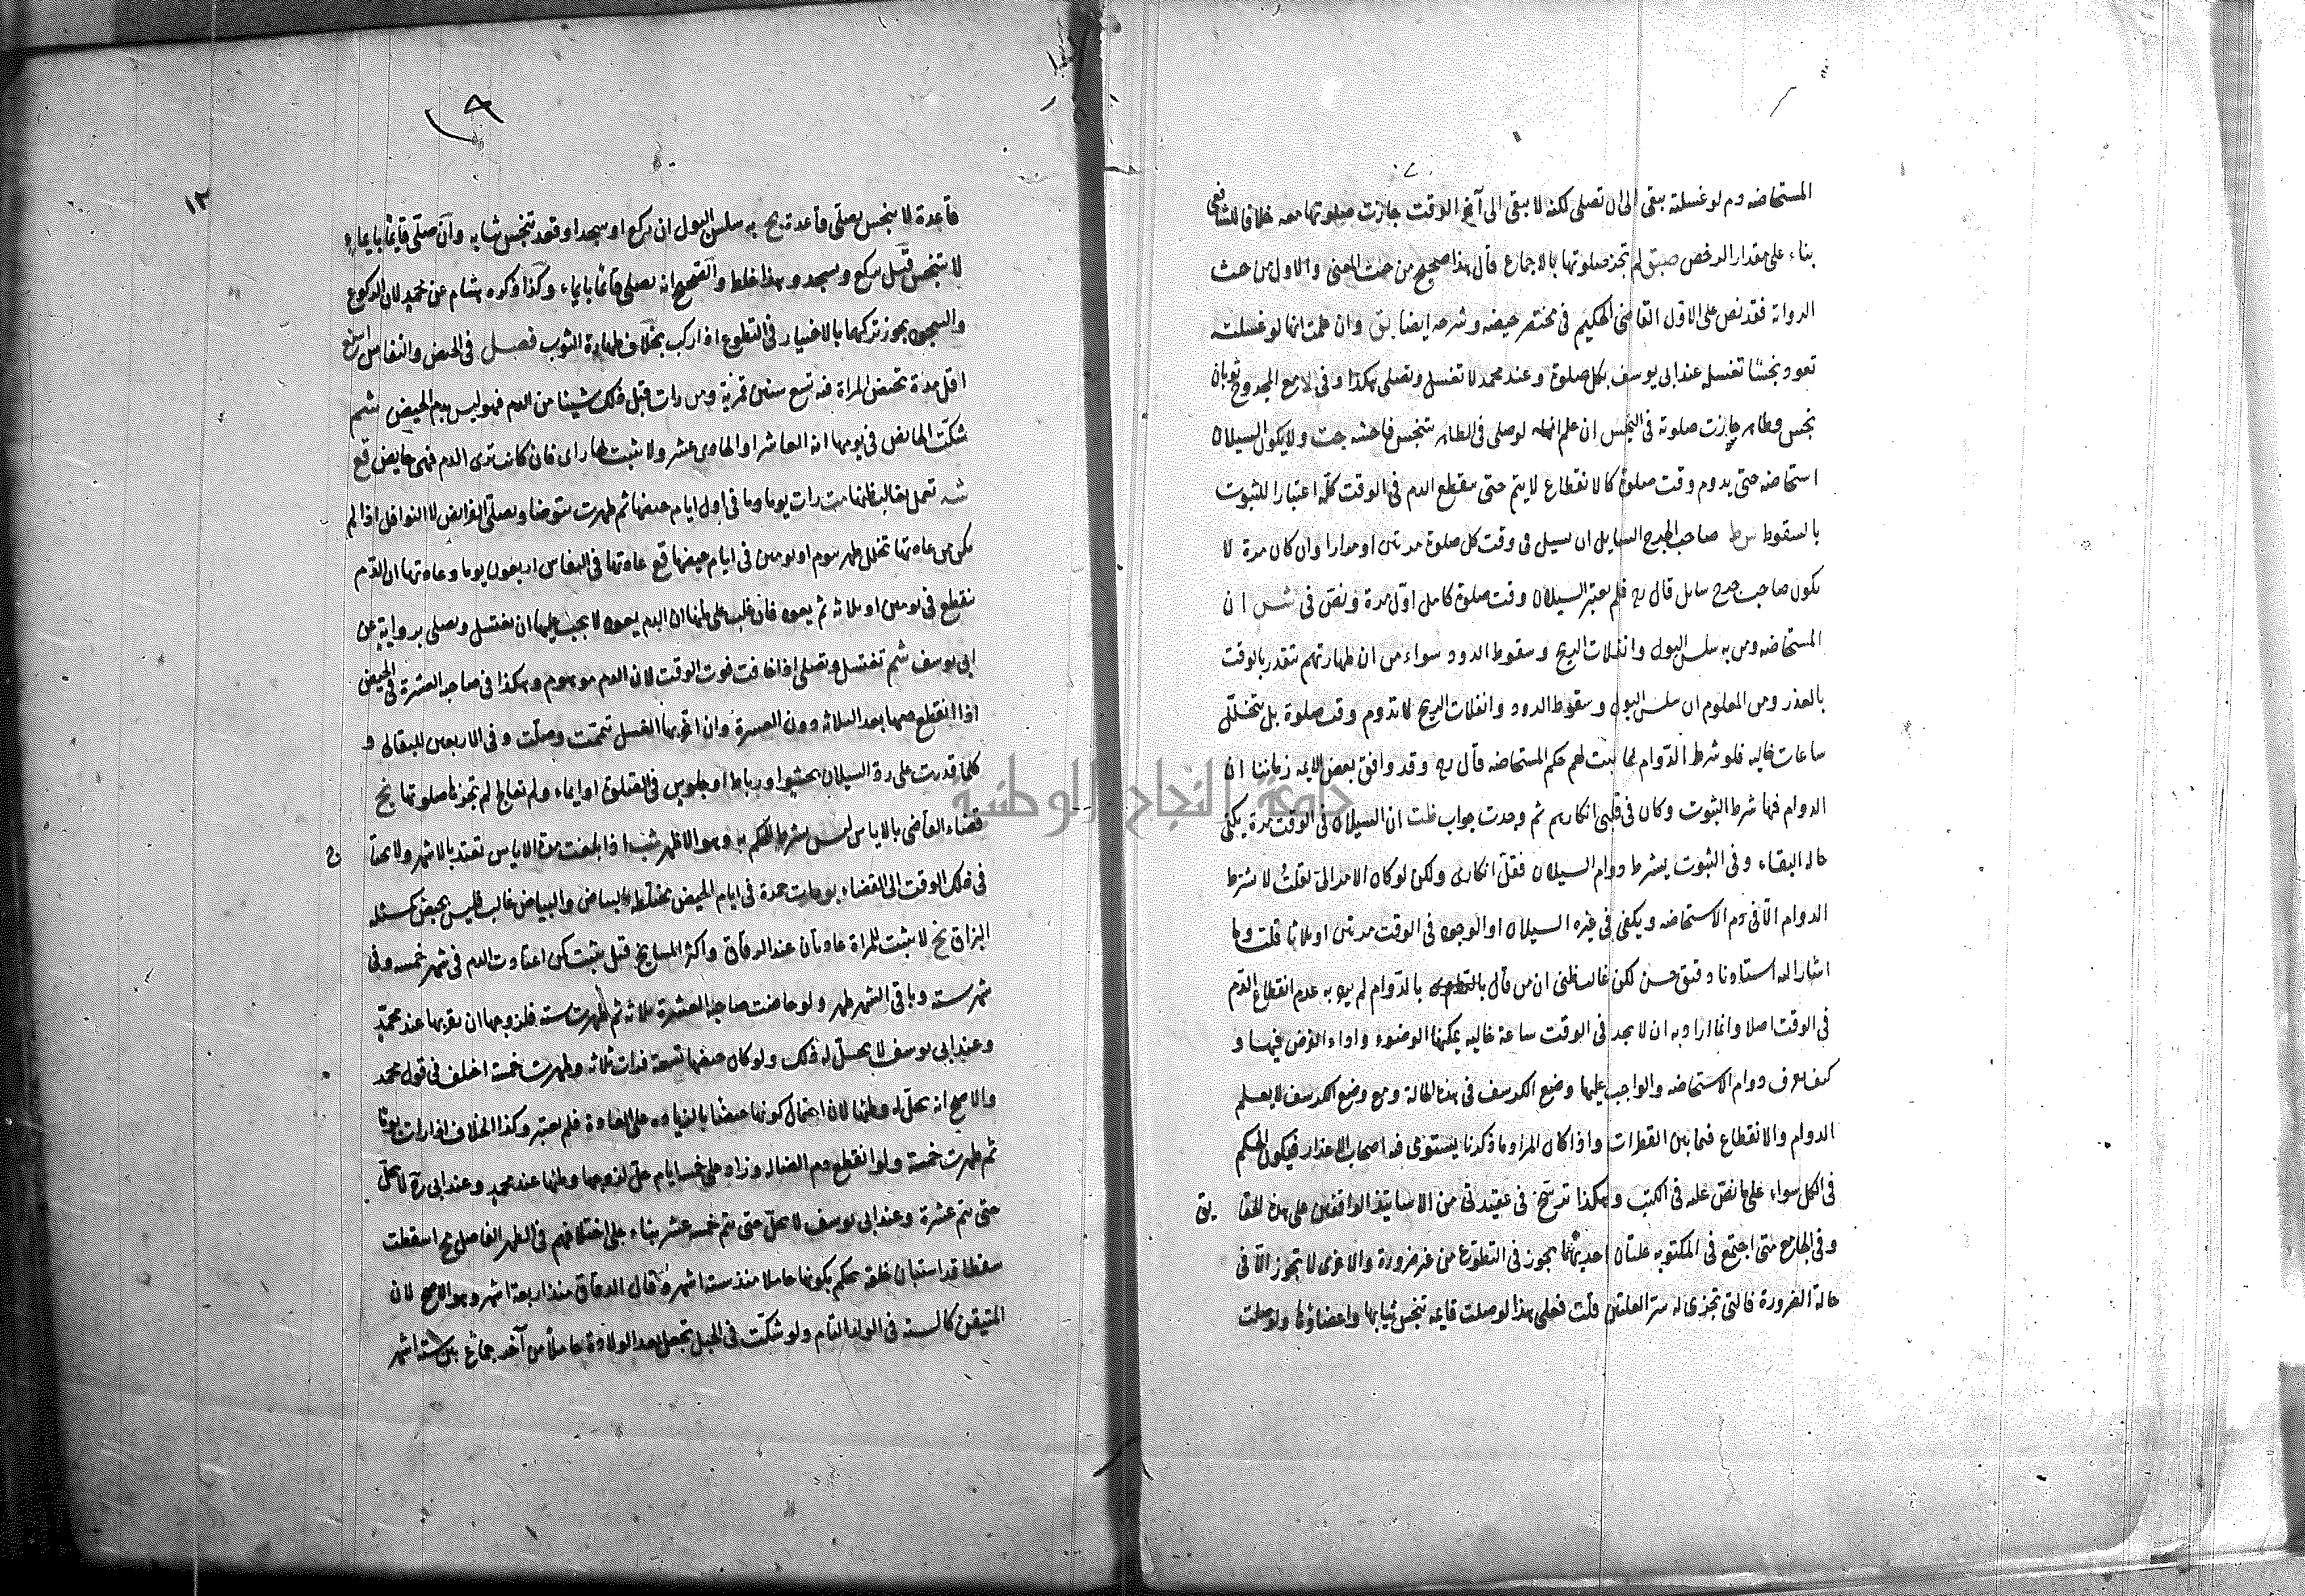 المستحاضه دم لو غسلته يبقى الى ان تصلى لكنه لا يبقى الى آخر الوقت جازت صلوتها معه خلافا للشافعى
بناء على مقدار الرخص لم تجز صلوتها بالاجماع قال هذا صحيح من حيث المعنى والاول من حيث
الرواية فقد نص على الاول القاضى الحكيم فى مختصر حيضه وشرحه ايضا بق وان علمت انها لو غسلت
تعود نجسًا تغسله عند ابى يوسف لكل صلوة وعند محمد لا تغسل وتصلى هكذا وفى لامع المجروح ثوبان
نجس وطاهر جازت صلوته فى النجس ان علم انه لو صلى فى الطاهر يتنجس فاحشه جت ولا يكون السيلان
استحاضه حتى يدوم وقت صلوة كالانقطاع لا يتم حتى ينقطع الدم فى الوقت كله اعتبارا للثبوت
بالسقوط صاحب الجرح السايل ان يسيل فى وقت كل صلوة مرتين او مرارا وان كان مرة لا
يكون صاحب جرح سايل قال رح فلم يعتبر السيلان وقت صلوة كامل اول مدة ونص فى ان
المستحاضه ومن به سلس البول وانفلات الريح وسقوط الدود سواء من ان طهارتهم تتقدر بالوقت
بالعذر ومن المعلوم ان سلس البول وسقوط الدود وانفلات الريح لا تدوم وقت صلوة بل يتخلل
ساعات خاليه فلو شرط الدوام لما ثبت لهم حكم المستحاضه قال رح وقد وافق بعض الايمه زماننا ان
الدوام فيها شرط الثبوت وكان فى قلبى انكارهم ثم وجدت جواب ان السيلان فى الوقت مرة يكفى
حاله البقاء وفى الثبوت يشترط دوام السيلان فقل انكارى ولكن لو كان الامر الىّ لقلت لا يشترط
الدوام الا فى دم الاستحاضه ويكفى فى غيره السيلان او الوجود فى الوقت مرتين او ثلاثا قلت وما
اشار اليه استادنا دقيق حسن لكن غالب ظنى ان من قال بالدوام لم يرد به عدم انقطاع الدم
فى الوقت اصلا وانما اراد به ان لا يجد فى الوقت ساعة خاليه يمكنها الوضوء واداء الفرض فيها و
كيف يعرف دوام الاستحاضه والواجب عليها وضع الكرسف فى هذه الحالة ومع وضع الكرسف لا يعلم
الدوام والانقطاع فيما بين القطرات واذا كان المراد ما ذكرنا يستوى فيه اصحاب الاعذار فيكون الحكم
فى الكل سواء على ما نص عليه فى الكتب وهكذا ترسخ فى عقيدتى من الاساتيذ الواقفين على هذه
وفى الجامع متى اجتمع فى المكتوبه علتان احديهما يجوز فى التطوع من غير ضرورة والاخرى لا تجوز الا فى
حالة الضرورة فالتى تجزى له ستر العلتين قلت فعلى هذا لو صلت قايمة تتنجس ثيابها واعضاؤها ولو صلت
١٢
قاعدة لا يتنجس تصلى قاعدة به سلس البول ان ركع او سجد او قعد تتنجس ثيابه وان صلى قايمًا بايماء
لا تتنجس قيل يركع ويسجد وهذا غلط والصحيح انه يصلى قايما بايماء وكذا ذكره هشام عن محمد لان الركوع
والسجود يجوز تركهما بالاختيار فى التطوع اذا ركب بخلاف طهارة الثوب فصل فى الحيض والنفاس
اقل مدة تحيض المراة فيه تسع سنين قمرية ومن رات قبل ذلك شيئا من الدم فهو ليس بدم الحيض شم
شكت الحايض فى يومها انه العاشر او الحادى عشر ولا ثبت لها راى فان كانت ترى الدم فهى حايض قع
تعمل بغالب ظنها رات يوما دما فى اول ايام حيضها ثم طهرت تتوضا وتصلى الفرايض لا النوافل اذا لم
يكن من عادتها تخلل طهر يوم او يومين فى ايام حيضها قع عادتها فى النفاس اربعون يوما وعادتها ان الدم
ينقطع فى يومين او ثلاثة ثم يعود فان غلب على ظنها ان الدم يعود لا يجب عليها ان تغتسل وتصلى برواية عن
ابى يوسف شم تغتسل وتصلى اذا خافت فوت الوقت لان الدم موهوم وهكذا فى صاحبة العشرة فى الحيض
اذا انقطع دمها بعد الثلاثه دون العشرة وان اضر بها الغسل تيممت وصلت وفى الاربعين للبقالى و
كلما قدرت على رد السيلان بحشو او رباط او جلوس فى الصلوة او ايماء ولم تعالج لم تجز لها صلوتها نج
قضاء القاضى بالاياس ليس بشرط للحكم به وهو الاظهر اذا بلغت مدة الاياس تعتد بالاشهر ولا تحتاج
فى ذلك الوقت الى القضاء رات حمرة فى ايام الحيض مختلطة ببياض والبياض غالب فليس بحيض كمسئلة
البزاق نج لا يثبت للمراة عادتان عند الدقاق واكثر المشايخ قيل يثبت كمن اعتادت الدم فى شهر خمسه وفى
شهر ستة وباقى الشهر طهر ولو حاضت صاحبة العشرة ثلاثة ثم طهرت ستة فلزوجها ان يقربها عند محمد
وعند ابى يوسف لا يحل له ذلك ولو كان حيضها تسعة فرات ثلاثة وطهرت خمسة اختلف فى قول محمد
والاصح انه يحل له وطئها لان احتمال كونها حيضًا بالزياده على العادة فلم يعتبر وكذا الخلاف اذا رات يومًا
ثم طهرت خمسة ولو انقطع دم الضالة وزاد على خمسة ايام حل لزوجها وطئها عند محمد وعند ابى لا يحل
حتى يتم عشرة وعند ابى يوسف لا يحل حتى يتم خمسة عشر بناء على اختلافهم فى الطهر الفاصل اسقطت
سقطا قد استبان خلقه يحكم بكونها حاملا منذ ستة اشهر وقال الدقاق منذ اربعة اشهر وهو الاصح لان
المتيقن كالستة فى الولد التام ولو شكت فى الحبل تجعل بعد الولادة حاملا من آخر جماع بين ستة اشهر